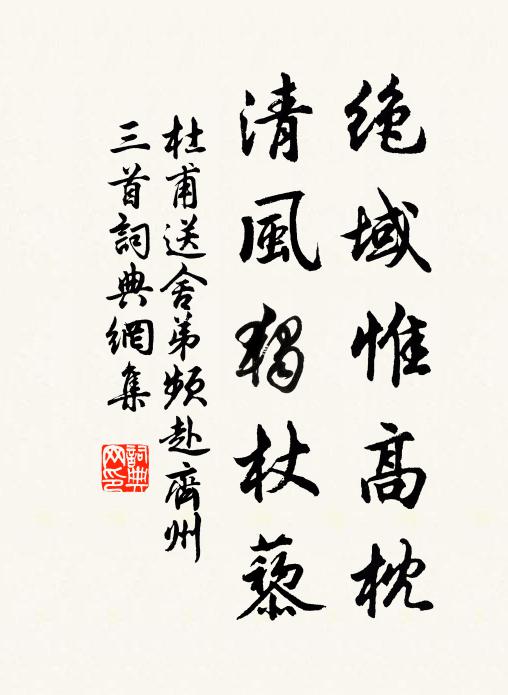 絶域惟高枕
清風獨杖藜
杜甫送舍弟頻赴齊州
三首詞典網集
詞典
网印